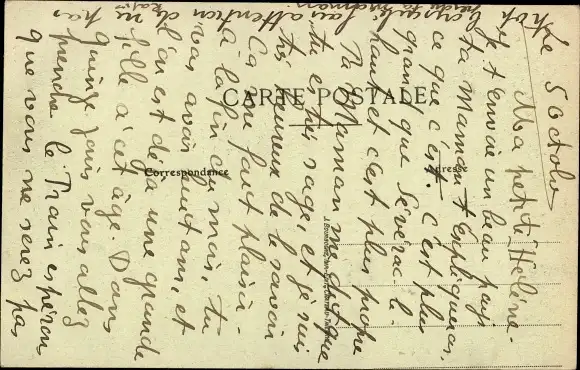 Le 5 Octobre
Ma petite Hélène.
Je t'envoie un beau pays.
ta Maman t'expliquera
ce que c'est. C'est plus
grand que Sévérac-l-
haut et c'est plus propre
Ta Maman me dit que
tu es très sage, et je suis
très heureux de le savoir
Ca me fait plaisir.
à la fin du mois, tu
vas avoir huit ans, et
l'on est déjà une grande
fille à cet âge. Dans
quinze jours vous allez
prendre le Train espérons
que vous ne serez pas
trop
attention de ne pas
CARTE POSTALE
Correspondance
Adresse